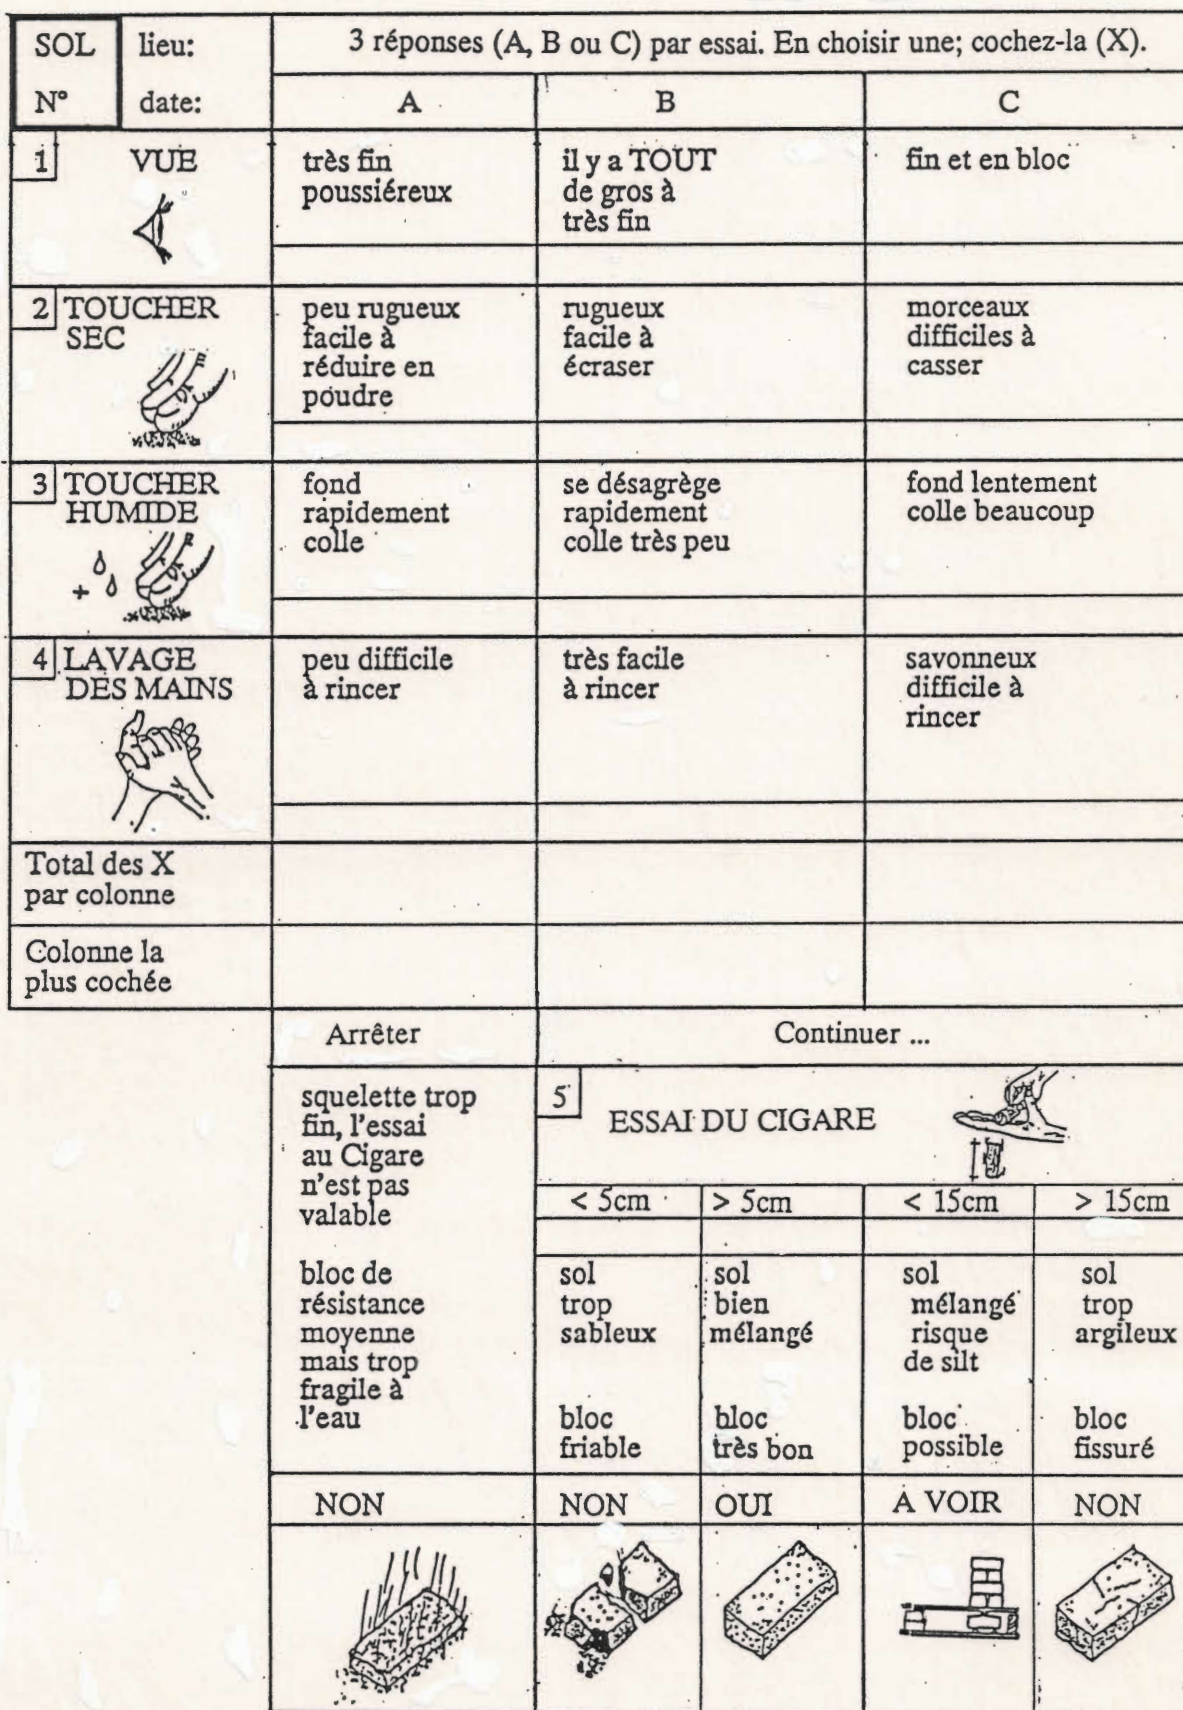 SOL lieu: 3 réponses (A, B ou C) par essai. En choisir une; cochez-la (X).
N° date: A B C
1 VUE
très fin
poussiéreux
il y a TOUT
de gros à
très fin
fin et en bloc
2 TOUCHER
SEC
peu rugueux
facile à
réduire en
poudre
rugueux
facile à
écraser
morceaux
difficiles à
casser
3 TOUCHER
HUMIDE
+
fond
rapidement
colle
se désagrège
rapidement
colle très peu
fond lentement
colle beaucoup
4 LAVAGE
DES MAINS
peu difficile
à rincer
très facile
à rincer
savonneux
difficile à
rincer
Total des X
par colonne
Colonne la
plus cochée
Arrêter Continuer ...
squelette trop
fin, l'essai
au Cigare
n'est pas
valable
bloc de
résistance
moyenne
mais trop
fragile à
l'eau
NON
5 ESSAI DU CIGARE
< 5cm > 5cm < 15cm > 15cm
sol
trop
sableux
bloc
friable
NON
sol
bien
mélangé
bloc
très bon
OUI
sol
mélangé
risque
de silt
bloc
possible
A VOIR
sol
trop
argileux
bloc
fissuré
NON